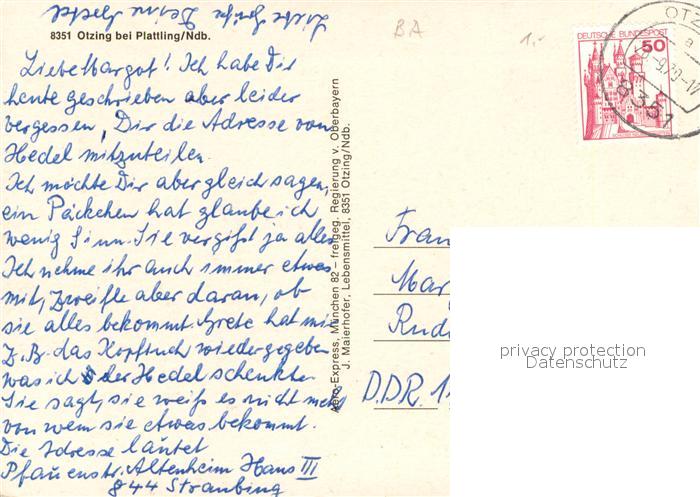 Liebe Grüße Deine Gretel
8351 Otzing bei Plattling/Ndb.
Liebe Margot! Ich habe Dir
heute geschrieben aber leider
vergessen, Dir die Adresse von
Hedel mitzuteilen.
Ich möchte Dir aber gleich sagen,
ein Päckchen hat glaube ich
wenig Sinn. Sie vergißt ja alles
Ich nehme ihr auch immer etwas
mit, zweifle aber daran, ob
sie alles bekommt. Grete hat mir
z.B. das Kopftuch wiedergegeben
was ich der Hedel schenkte
Sie sagt, sie weiß es nicht mehr
von wem sie etwas bekommt.
Die Adresse lautet
Pfauenstr. Altenheim Haus III
844 Straubing
Aero-Express, München 82 – freigeg. Regierung v. Oberbayern
J. Maierhofer, Lebensmittel, 8351 Otzing/Ndb.
BA
1.-
DEUTSCHE BUNDESPOST
50
OTZ
8351
Frau
Mar
Rud
DDR 1
privacy protection
Datenschutz